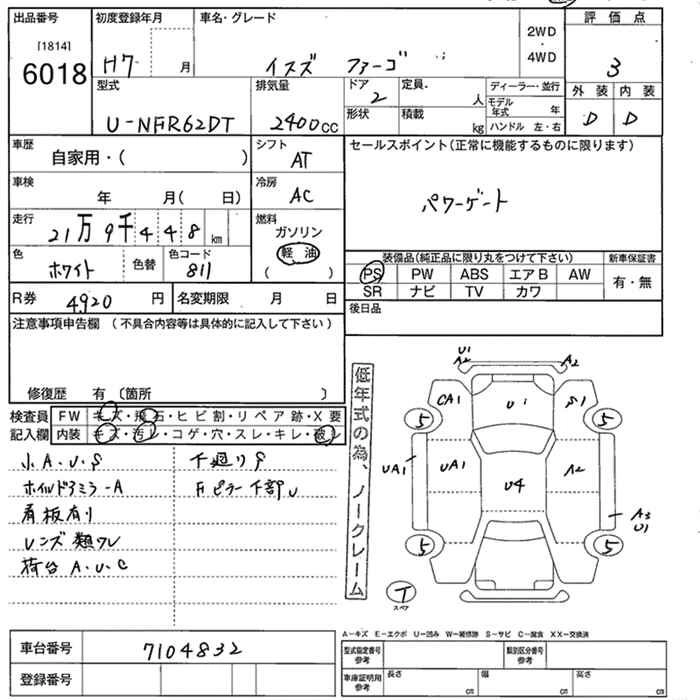 出品番号 初度登録年月 車名・グレード 評価点
[1814]
6018 H7 月 イスズ ファーゴ 2WD・4WD 3
型式 排気量 ドア 定員 ディーラー・並行 外装 内装
U-NFR62DT 2400cc 2 人 モデル年式 年 D D
形状 積載 kg ハンドル 左・右
車歴 シフト セールスポイント(正常に機能するものに限ります)
自家用・( ) AT
車検 冷房
年 月( 日) AC パワーゲート
走行 燃料
21万9千448km ガソリン
軽油
( )
色 色替 色コード 装備品(純正品に限り丸をつけて下さい) 新車保証書
ホワイト 811 PS PW ABS エアB AW 有・無
SR ナビ TV カワ
R券 4920 円 名変期限 月 日 後日品
注意事項申告欄 (不具合内容等は具体的に記入して下さい)
修復歴 有〔箇所 〕
検査員 FW キズ・飛石・ヒビ割・リペア跡・X要
記入欄 内装 キズ・汚レ・コゲ・穴・スレ・キレ・破レ
小A.U.S 下廻りS
ホイルドアミラーA Fピラー下部U
看板有り
レンズ類ワレ
荷台 A.U.C
低年式の為、ノークレーム
U1
A2 A2
CA1 U S1
5 5
UA1 UA1 U4 A2 A3
U1
5 5
T
スペア
車台番号 7104832
登録番号
A-キズ E-エクボ U-凹み W-補修跡 S-サビ C-腐食 XX-交換済
型式指定番号 参考 類別区分番号 参考
車庫証明用 参考 長さ cm 幅 cm 高さ cm